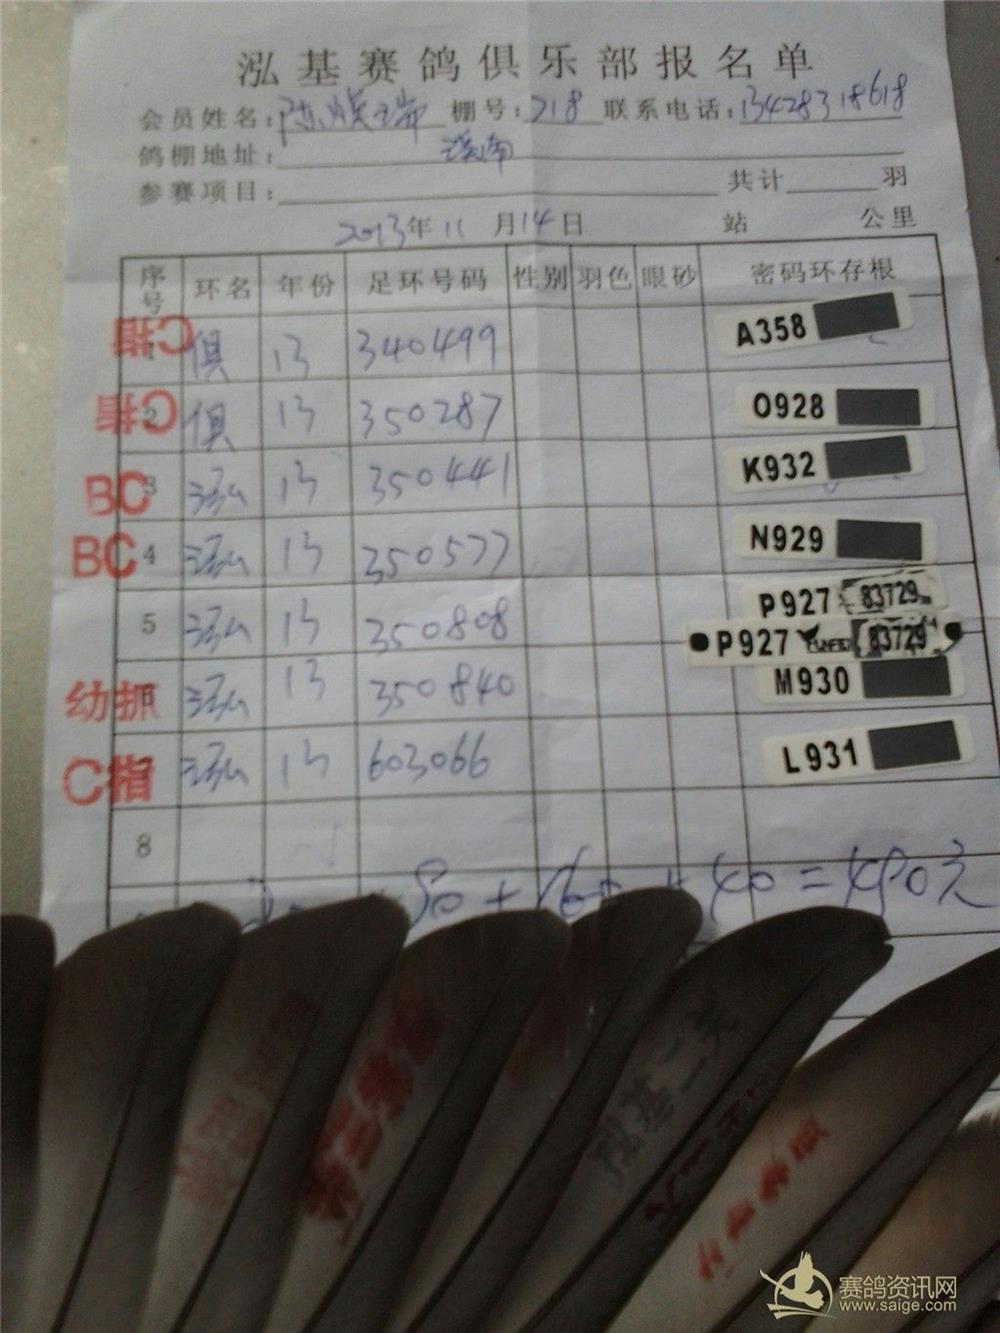 泓基赛鸽俱乐部报名单
会员姓名: 陈 棚号: 218 联系电话: 13428318618
鸽棚地址: 溪南
参赛项目: 共计 羽
2013年 11 月14日 站 公里
序号 环名 年份 足环号码 性别 羽色 眼砂 密码环存根
1 俱 13 340499 A358
2 俱 13 350287 O928
BC 3 泓 13 350441 K932
BC 4 泓 13 350577 N929
5 泓 13 350808 P927 83729
P927 83729
幼 泓 13 350840 M930
C指 泓 13 603066 L931
8
80 + 160 + 40 = 480元
泓基二关
赛鸽资讯网
www.saige.com